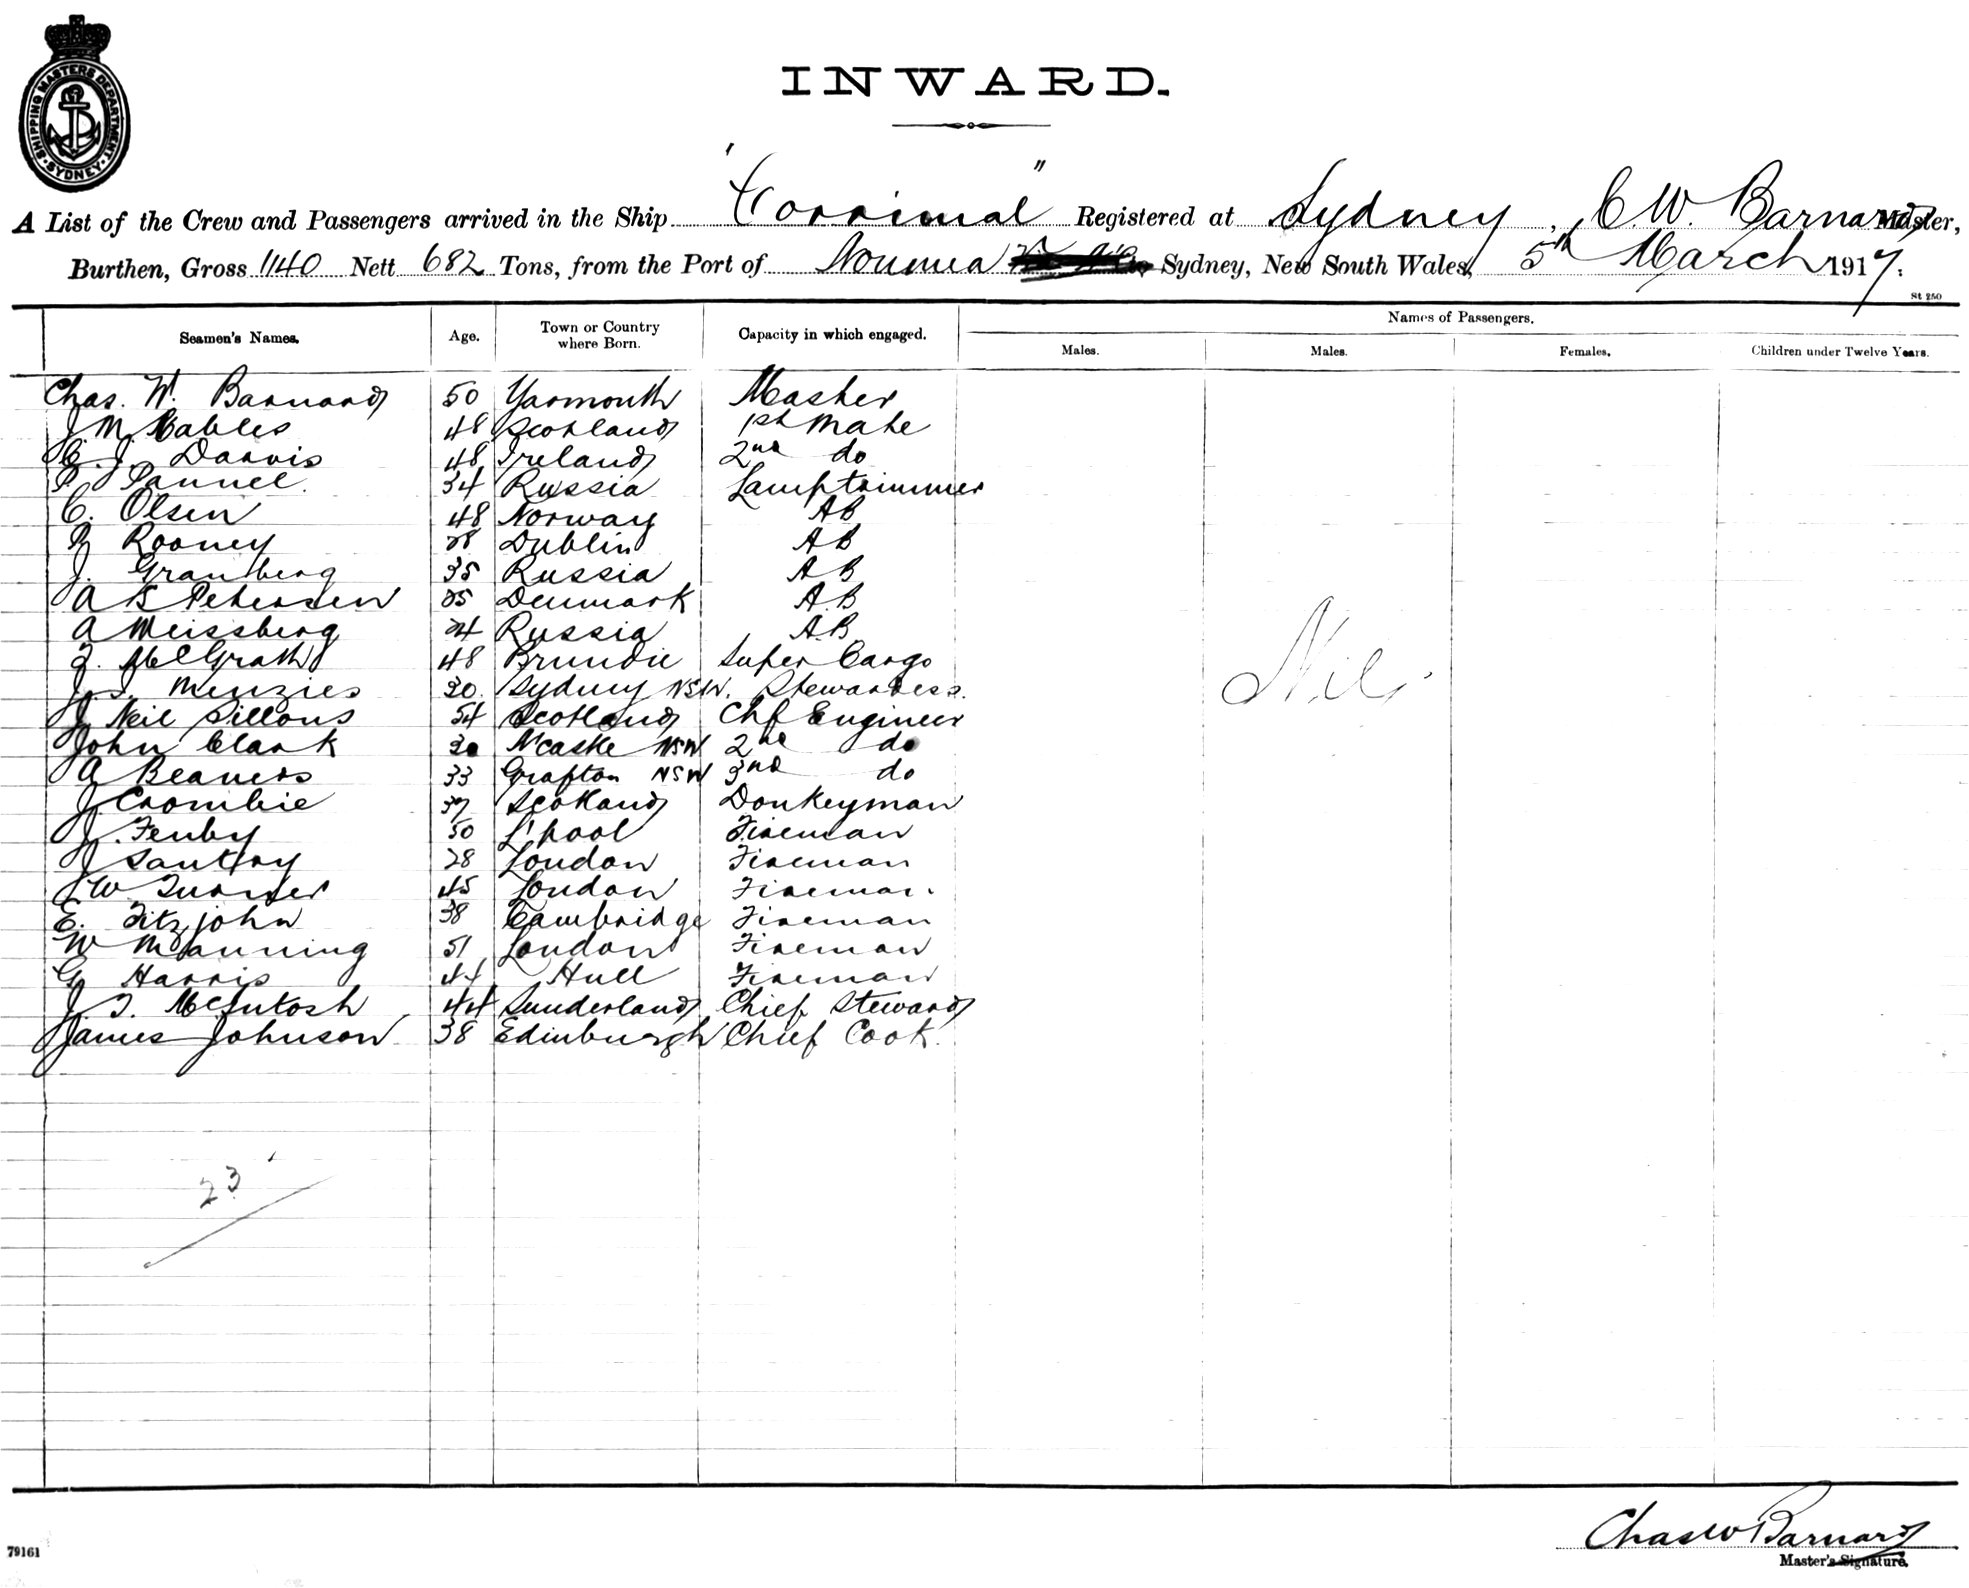 SHIPPING MASTERS DEPARTMENT · SYDNEY ·
INWARD.
A List of the Crew and Passengers arrived in the Ship "Corrimal" Registered at Sydney, C. W. Barnard Master,
Burthen, Gross 1140 Nett 682 Tons, from the Port of Noumea Sydney, New South Wales, 5th March 1917.
St 250
Seamen's Names. Age. Town or Country where Born. Capacity in which engaged. Names of Passengers.
Males. Males. Females. Children under Twelve Years.
Chas. W. Barnard 50 Yarmouth Master
J. M. 48 Scotland 1st Mate
C. J. Darvis 48 Ireland 2nd do
P. Pannel 34 Russia Lamptrimmer
C. Olsen 48 Norway AB
Rooney 28 Dublin AB
J. Granberg 35 Russia AB
A Petersen 25 Denmark A.B
A Weissberg 24 Russia A.B
McGrath 48 Super Cargo
J. S. Menzies 30. Sydney NSW. Stewardess.
J Neil Sillous 54 Scotland Chf Engineer
John Clark N'castle NSW 2nd do
A Beavers 33 Grafton NSW 3rd do
J. Crombie 37 Scotland Donkeyman
J. Fenby 50 L'pool Fireman
J Santry 28 London Fireman
W Turner 45 London Fireman
E. Fitzjohn 38 Cambridge Fireman
W Manning 51 London Fireman
G Harris 44 Hull Fireman
J. T. McIntosh 44 Sunderland Chief Steward
James Johnson 38 Edinburgh Chief Cook.
Nil
23
Chas W Barnard
Master's Signature.
79161